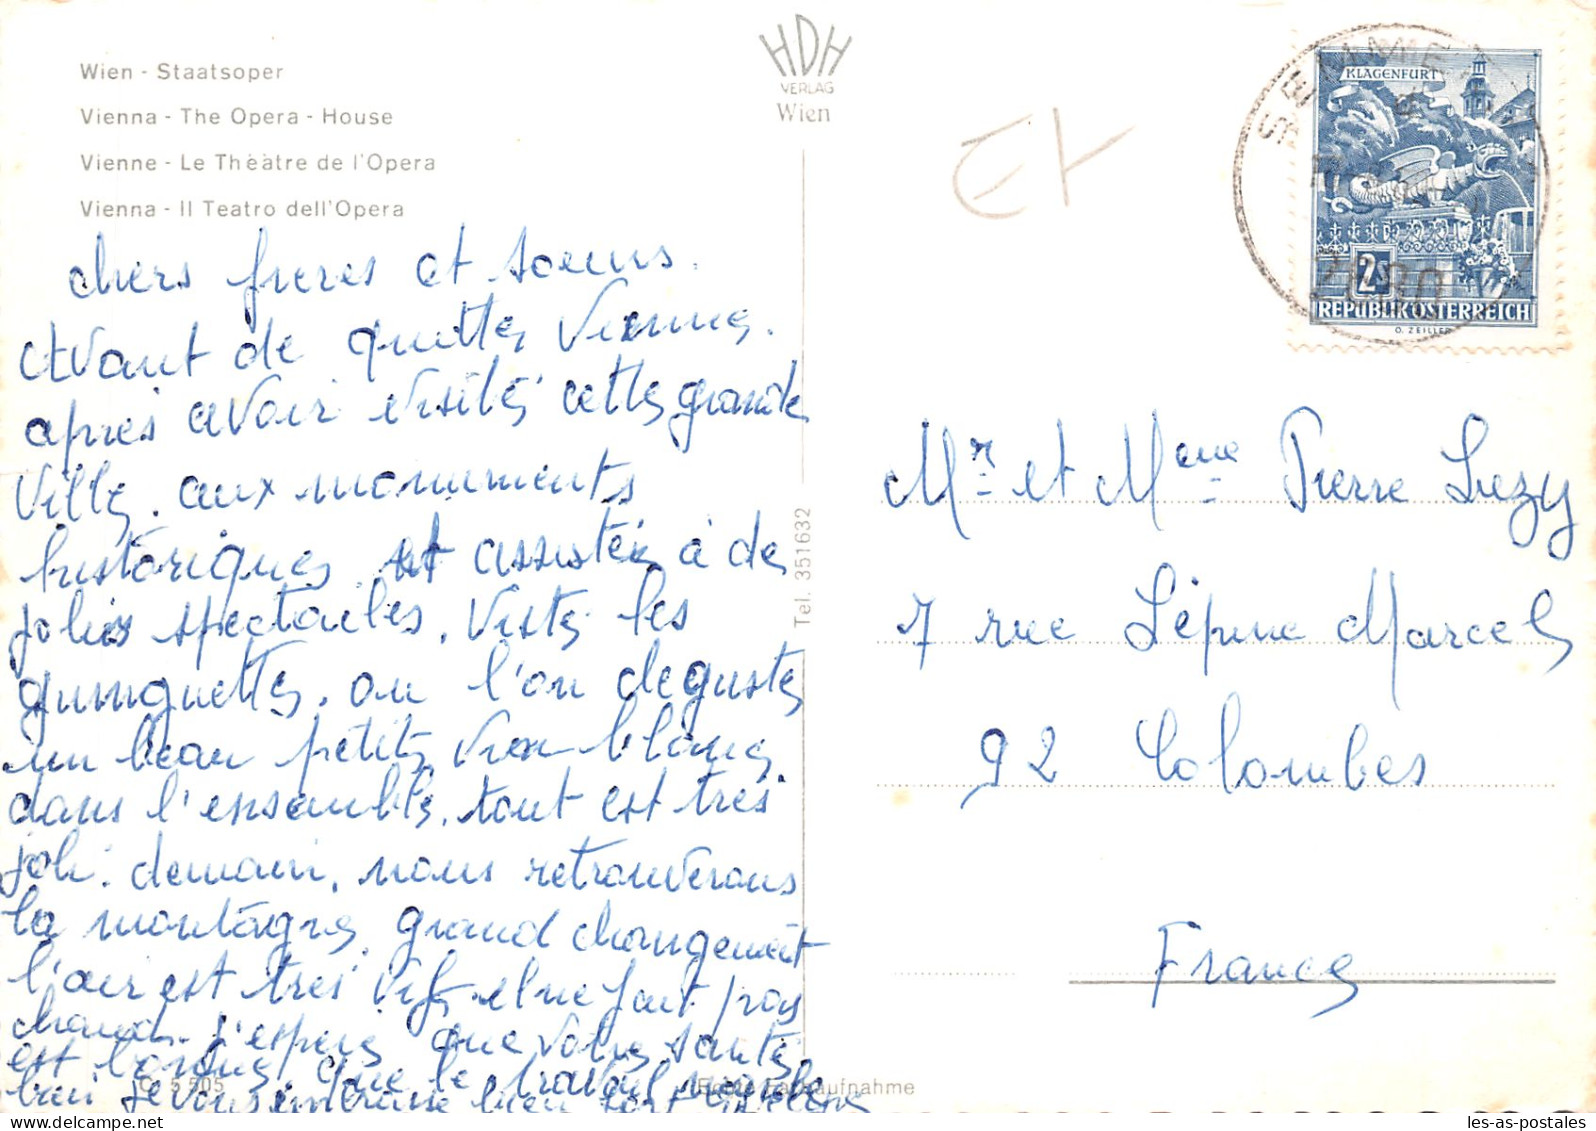 Wien - Staatsoper
Vienna - The Opera - House
Vienne - Le Théàtre de l'Opera
Vienna - Il Teatro dell'Opera
HDH
VERLAG
Wien
EX
SEMMER
KLAGENFURT
2S
2680
REPUBLIK ÖSTERREICH
O. ZEILLER
chers freres et soeurs.
Avant de quitter Vienne.
apres avoir visité cette grande
Ville. aux monuments
historiques et assistée à de
jolies spectacles. Visite les
guinguettes. ou l'on deguste
un beau petit vin blanc
dans l'ensemble. tout est très
joli. demain, nous retrouverons
la montagne. grand changement
l'air est tres vif. il ne fait pas
chaud. J'espere que votre santé
est bonne que le travail marche
bien Je vous embrasse bien fort
Tel. 351632
C 5 505
Echte Farbaufnahme
Mr et Mme Pierre Lezy
7 rue Lépine Marcel
92 Colombes
France
les-as-postales